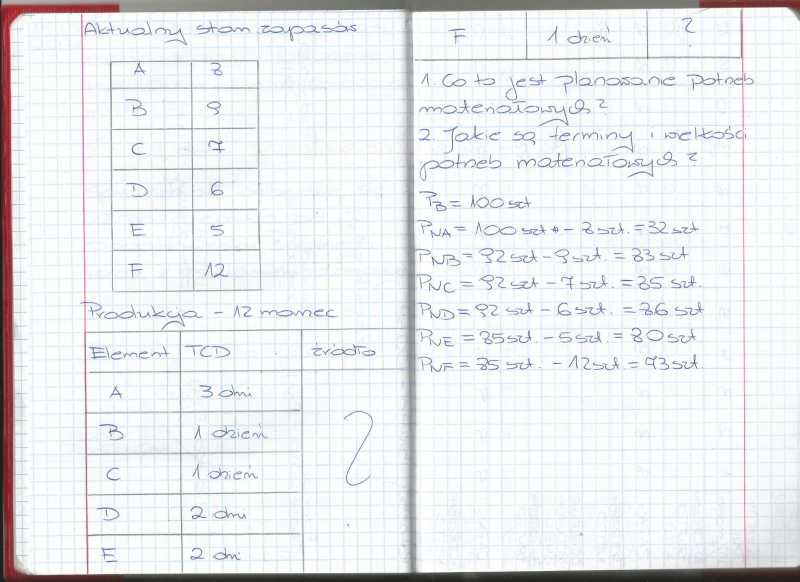 Aktualny stan zapasów
A 8
B 9
C 7
D 6
E 5
F 12
Produkcja - 12 marzec
Element TCD źródło
A 3 dni ?
B 1 dzień
C 1 dzień
D 2 dni
E 2 dni
F 1 dzień ?
1. Co to jest planowanie potrzeb
materiałowych?
2. Jakie są terminy i wielkości
potrzeb materiałowych?
PB = 100 szt
PNA = 100 szt - 8 szt. = 92 szt
PNB = 92 szt - 9 szt. = 83 szt
PNC = 92 szt - 7 szt. = 85 szt.
PND = 92 szt - 6 szt. = 86 szt
PNE = 85 szt. - 5 szt. = 80 szt
PNF = 85 szt. - 12 szt = 73 szt.